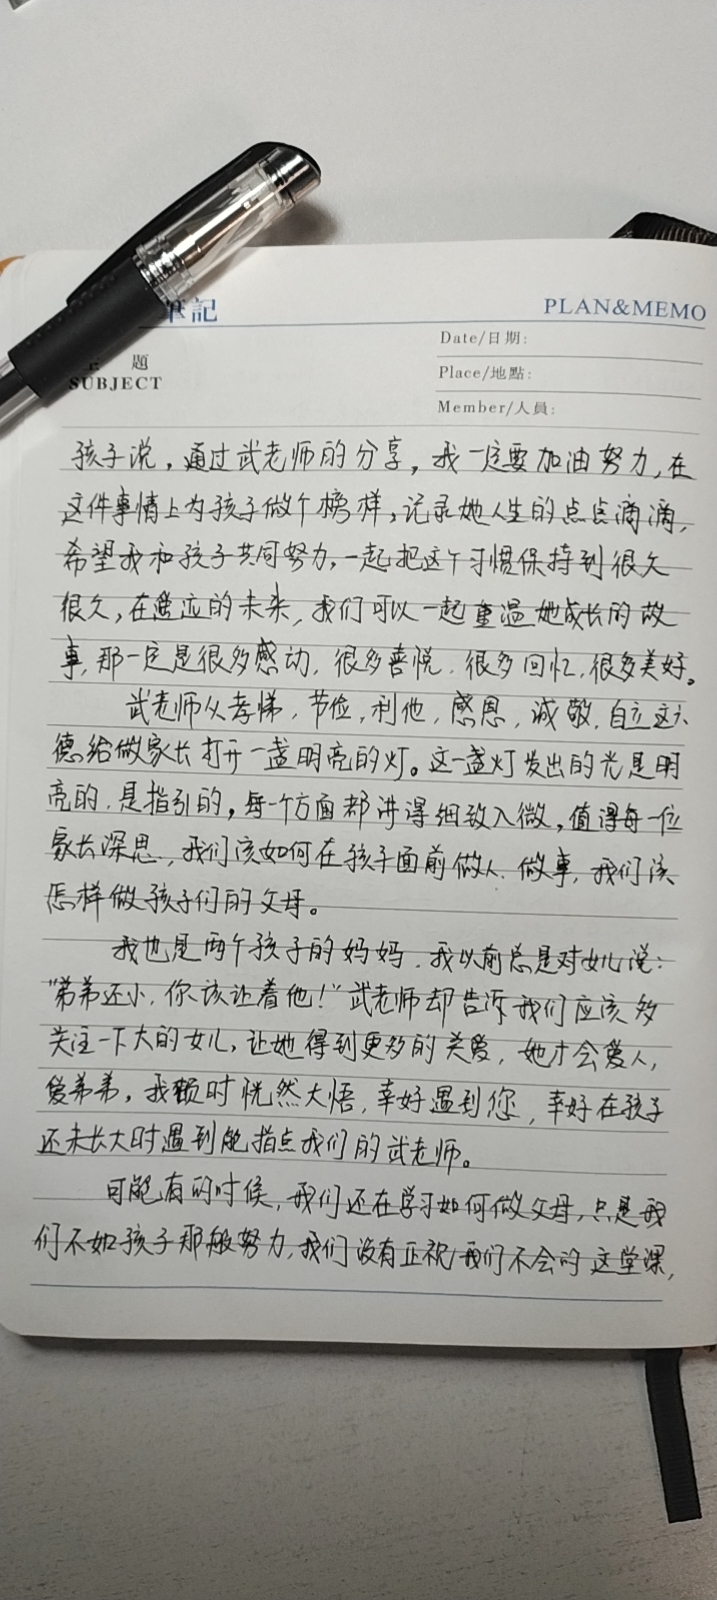 筆記
PLAN&MEMO
題
SUBJECT
Date/日期:
Place/地點:
Member/人員:
孩子说，通过武老师的分享，我一定要加油努力，在
这件事情上为孩子做个榜样，记录她人生的点点滴滴，
希望我和孩子共同努力，一起把这个习惯保持到很久
很久，在遥远的未来，我们可以一起重温她成长的故
事，那一定是很多感动，很多喜悦，很多回忆，很多美好。
武老师从孝悌，节俭，利他，感恩，诚敬，自立这六
德给做家长打开一盏明亮的灯。这一盏灯发出的光是明
亮的，是指引的，每一个方面都讲得细致入微，值得每一位
家长深思，我们该如何在孩子面前做人、做事，我们该
怎样做孩子们的父母。
我也是两个孩子的妈妈，我以前总是对女儿说：
“弟弟还小，你该让着他！”武老师却告诉我们应该多
关注一下大的女儿，让她得到更多的关爱，她才会爱人，
爱弟弟，我顿时恍然大悟，幸好遇到您，幸好在孩子
还未长大时遇到能指点我们的武老师。
可能有的时候，我们还在学习如何做父母，只是我
们不如孩子那般努力，我们没有正视我们不会的这堂课，